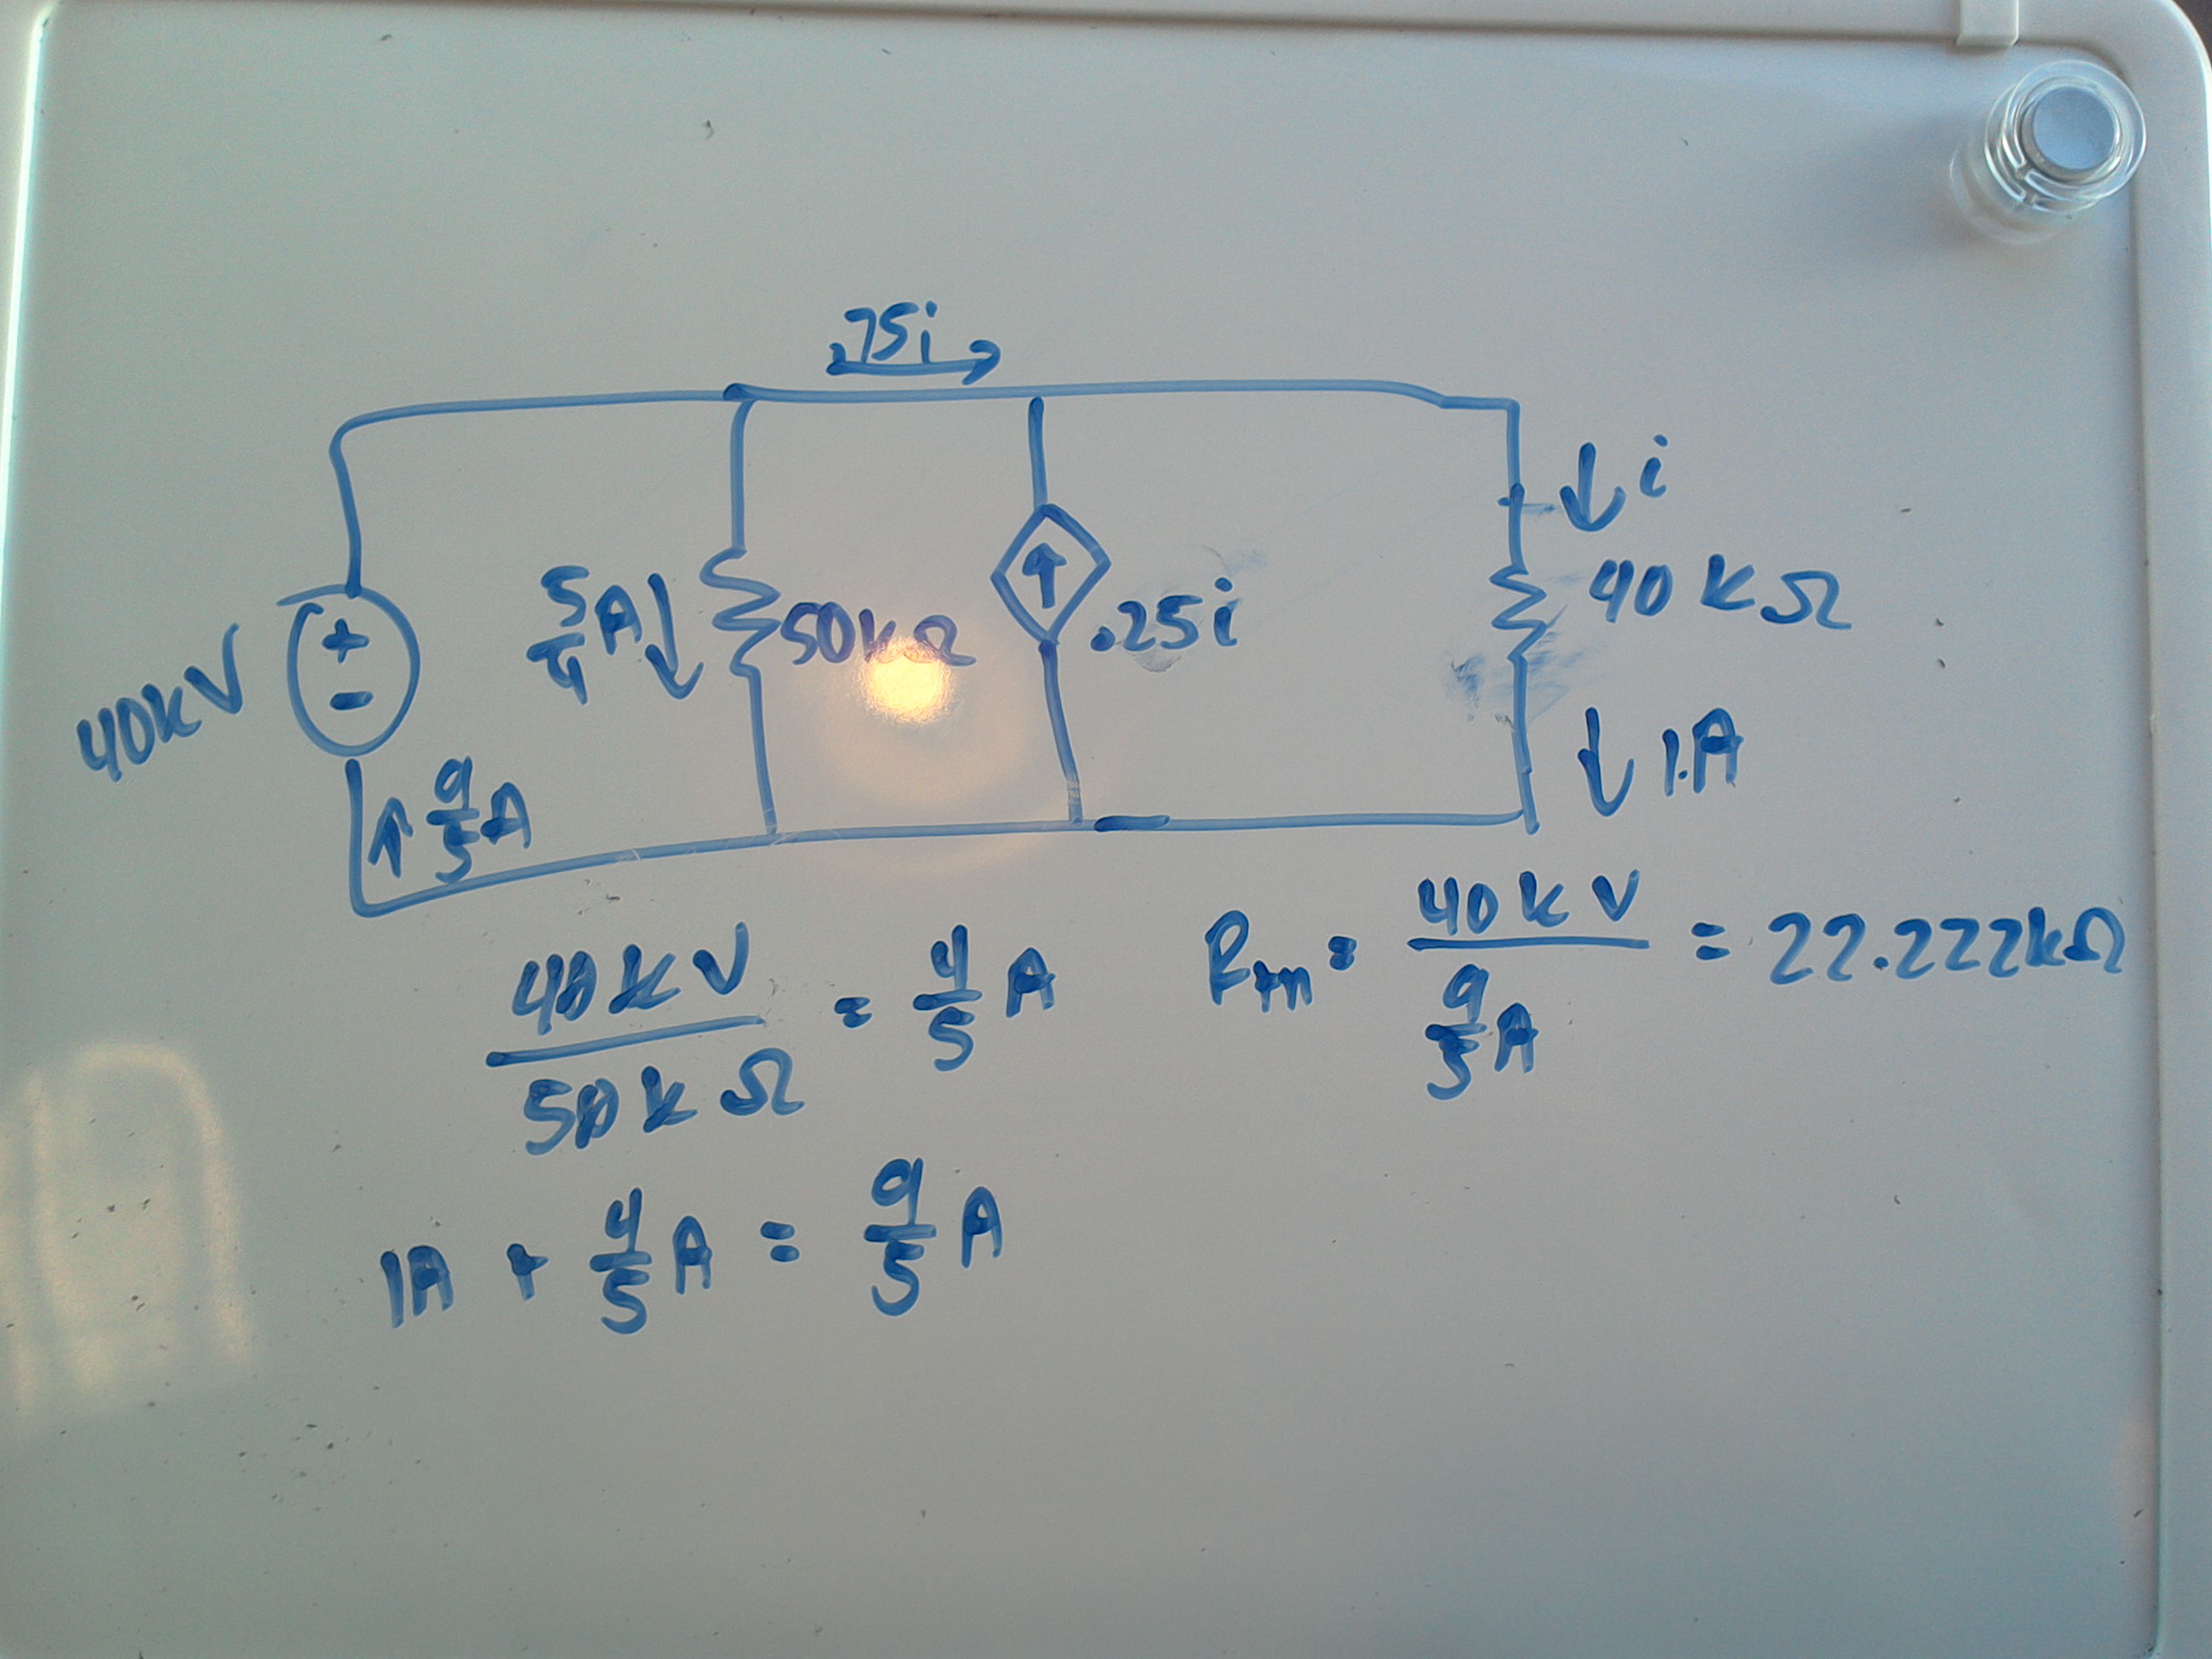 .75i
i
40kΩ
5/4 A
50kΩ
.25i
40kV
+
-
1A
9/5 A
40kV/50kΩ = 4/5 A
Rth = 40kV / 9/5 A = 22.222kΩ
1A + 4/5 A = 9/5 A